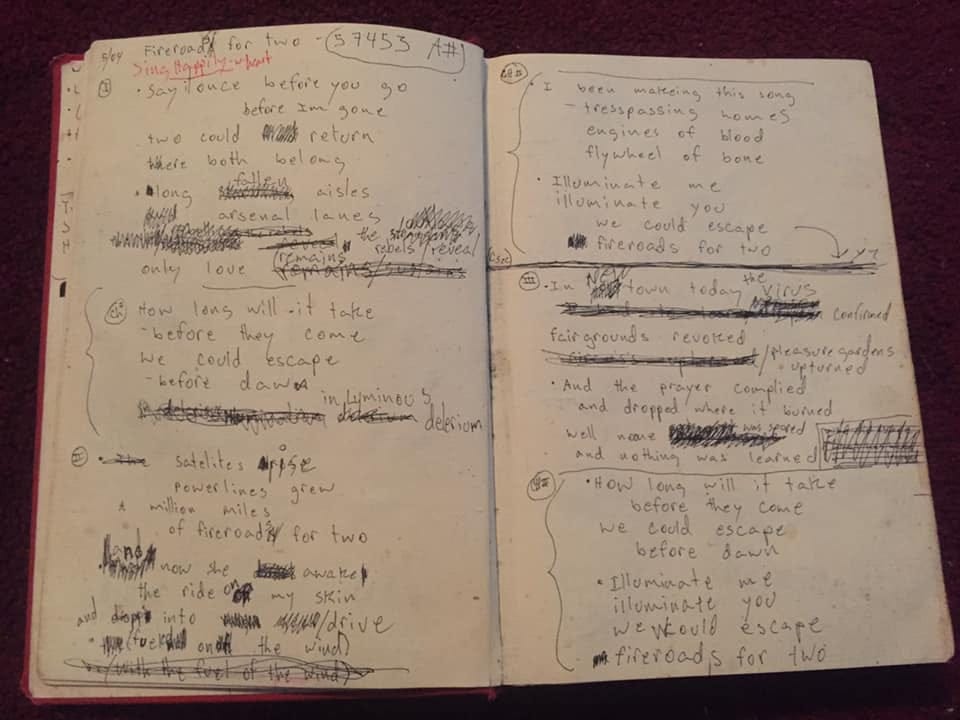 5/04
Fireroads for two - 57453 A#
Sing Happily - w heart
I
· say it once before you go
before Im gone
two could return
where both belong
· along fallen aisles
arsenal lanes
the
rebels/reveal
remains
only love
CH
How long will it take
- before they come
we could escape
- before dawn
in Lyminous
delerium
II
satelites rise
powerlines grew
A million miles
of fireroads for two
and now she awake
the ride on my skin
and into /drive
(fueled on the wind)
(with the fuel of the wind)
CH II
· I been makeing this song
- tresspassing homes
engines of blood
flywheel of bone
· Illuminate me
illuminate you
we could escape
fireroads for two
III
· In NEW town today the virus
confirmed
fairgrounds revoked
/pleasure gardens
upturned
· And the prayer complied
and dropped where it burned
well none was spared
and nothing was learned
CH III
· How long will it take
before they come
we could escape
before dawn
· Illuminate me
illuminate you
we could escape
fireroads for two